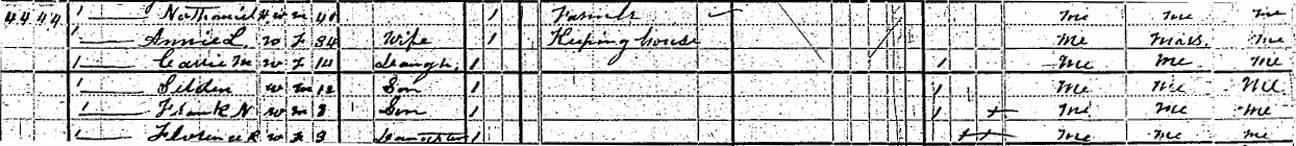 44 44 1 —— Nathaniel H W M 40 1 Farmer ✓ Me Me Me
1 —— Annie L. W F 34 Wife 1 Keeping house Me Mass. Me
1 —— Carrie M W F 14 Daugh. 1 1 Me Me Me
1 —— Selden W M 12 Son 1 1 Me Me Me
1 —— Frank N W M 8 Son 1 1 + Me Me Me
1 —— Florence R W F 8 Daughter 1 + + Me Me Me